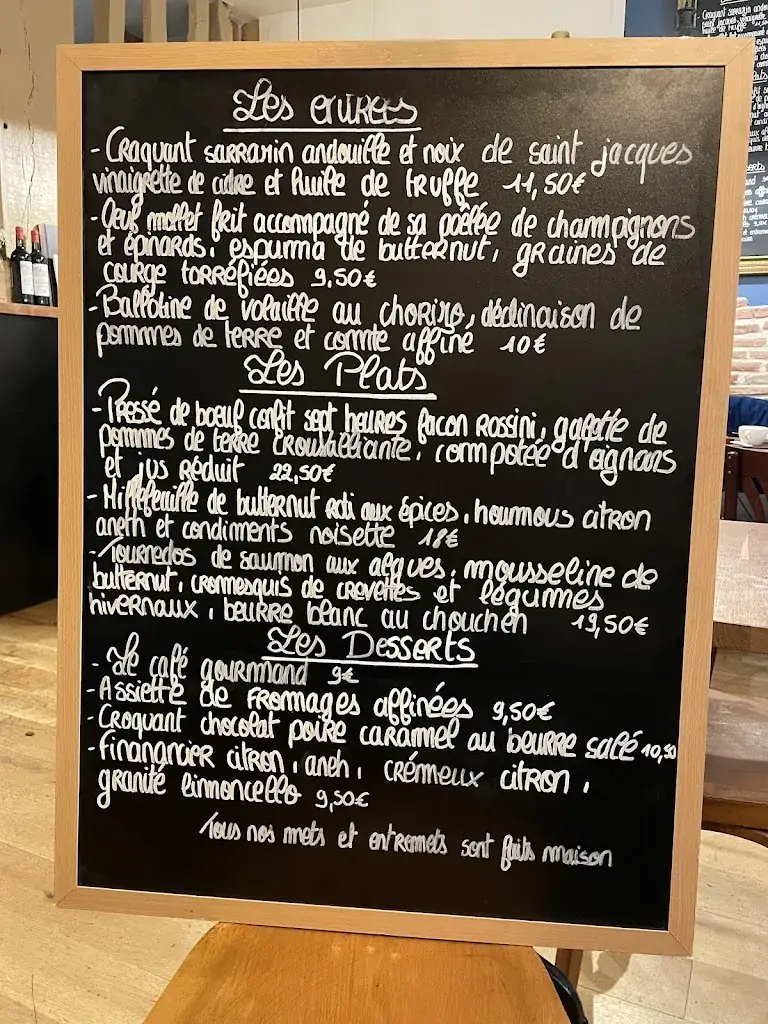 Les entrees
- Craquant sarrasin andouille et noix de saint jacques
vinaigrette de cidre et huile de truffe 11,50€
- Oeuf mollet frit accompagné de sa poêlée de champignons
et épinards, espurma de butternut, graines de
courge torréfiées 9,50€
- Ballotine de volaille au chorizo, déclinaison de
pommes de terre et comte affiné 10€
Les Plats
- Pressé de boeuf confit sept heures façon Rossini, galette de
pommes de terre croustilliante, compotée d'oignons
et jus réduit 22,50€
- Millefeuille de butternut roti aux épices, houmous citron
aneth et condiments noisette 18€
- Tournedos de saumon aux algues, mousseline de
butternut, cromesquis de crevettes et légumes
hivernaux, beurre blanc au chouchen 19,50€
Les Desserts
- Le café gourmand 9€
- Assiette de fromages affinées 9,50€
- Croquant chocolat poire caramel au beurre salé 10,50
- Finanancier citron, aneh, crémeux citron,
granité limnoncello 9,50€
Tous nos mets et entremets sont faits maison